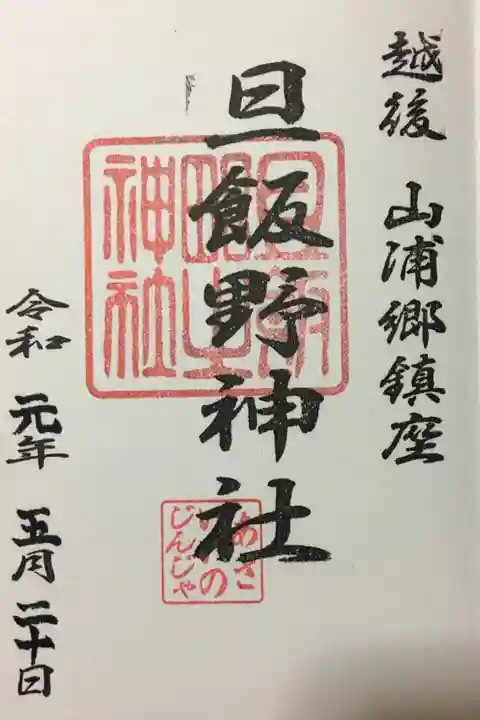 越後 山浦郷鎮座
旦飯野神社
あさ
いいの
じんじゃ
令和 元年 五月 二十日